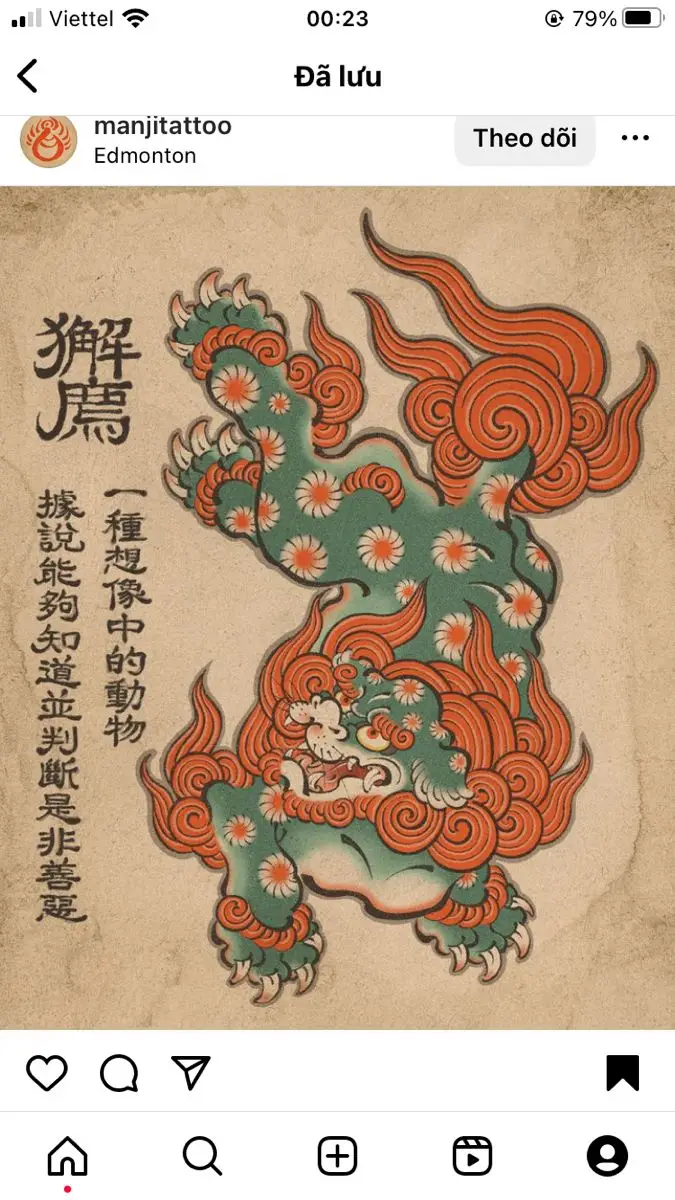 Viettel 00:23 79%
Đã lưu
manjitattoo
Edmonton
Theo dõi
獬廌
一種想像中的動物
據說能夠知道並判斷是非善惡